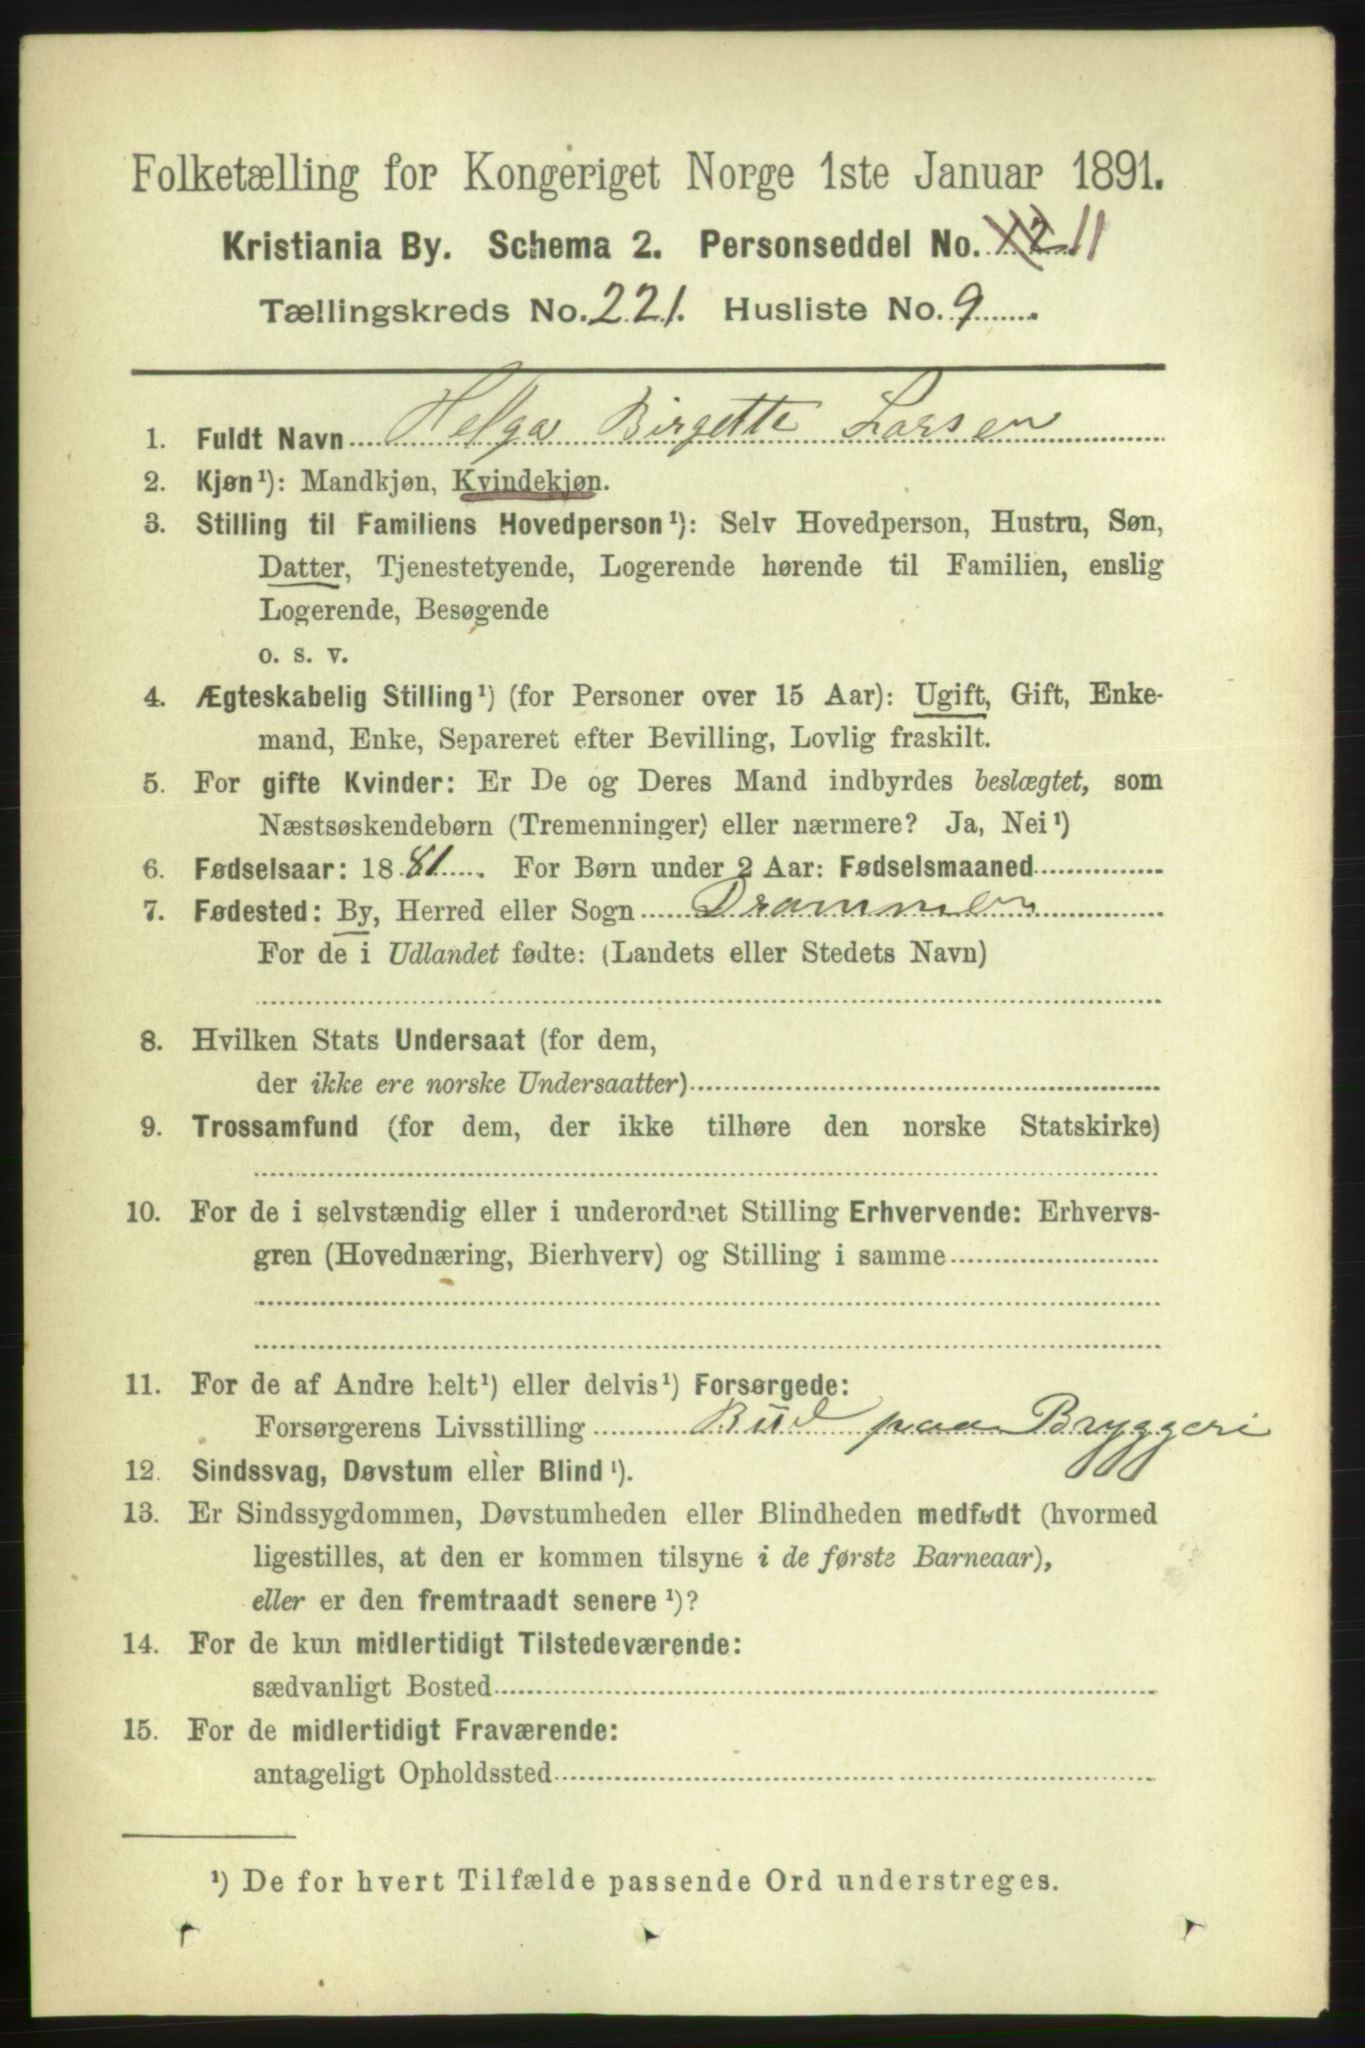 Folketælling for Kongeriget Norge 1ste Januar 1891.
Kristiania By. Schema 2. Personseddel No. 12 11
Tællingskreds No. 221. Husliste No. 9
1. Fuldt Navn Helga Birgette Larsen
2. Kjøn¹): Mandkjøn, Kvindekjøn.
3. Stilling til Familiens Hovedperson¹): Selv Hovedperson, Hustru, Søn,
Datter, Tjenestetyende, Logerende hørende til Familien, enslig
Logerende, Besøgende
o. s. v.
4. Ægteskabelig Stilling¹) (for Personer over 15 Aar): Ugift, Gift, Enke-
mand, Enke, Separeret efter Bevilling, Lovlig fraskilt.
5. For gifte Kvinder: Er De og Deres Mand indbyrdes beslægtet, som
Næstsøskendebørn (Tremenninger) eller nærmere? Ja, Nei¹)
6. Fødselsaar: 1881. For Børn under 2 Aar: Fødselsmaaned
7. Fødested: By, Herred eller Sogn Drammen
For de i Udlandet fødte: (Landets eller Stedets Navn)
8. Hvilken Stats Undersaat (for dem,
der ikke ere norske Undersaatter)
9. Trossamfund (for dem, der ikke tilhøre den norske Statskirke)
10. For de i selvstændig eller i underordnet Stilling Erhvervende: Erhvervs-
gren (Hovednæring, Bierhverv) og Stilling i samme
11. For de af Andre helt¹) eller delvis¹) Forsørgede:
Forsørgerens Livsstilling Bud paa Bryggeri
12. Sindssvag, Døvstum eller Blind¹).
13. Er Sindssygdommen, Døvstumheden eller Blindheden medfødt (hvormed
ligestilles, at den er kommen tilsyne i de første Barneaar),
eller er den fremtraadt senere¹)?
14. For de kun midlertidigt Tilstedeværende:
sædvanligt Bosted
15. For de midlertidigt Fraværende:
antageligt Opholdssted
¹) De for hvert Tilfælde passende Ord understreges.